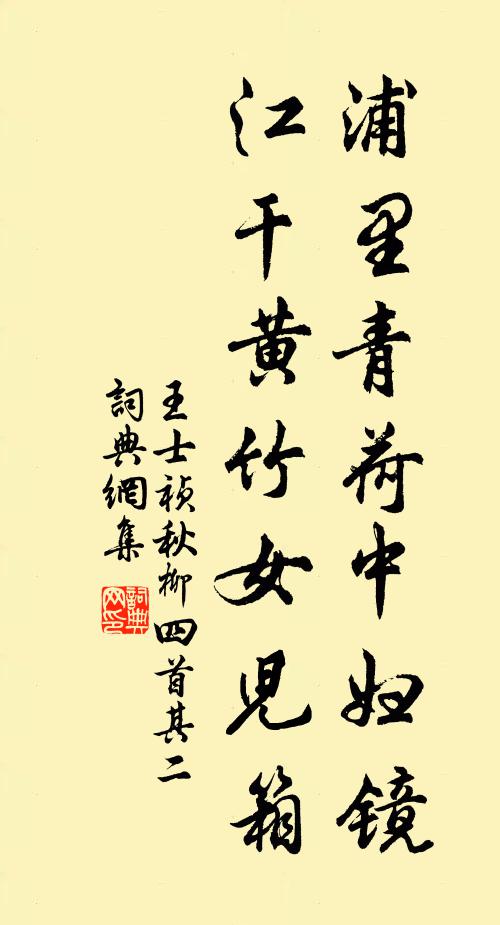 浦里青荷中妇镜
江干黄竹女児箱
王士祯秋柳四首其二
詞典網集
詞典网印